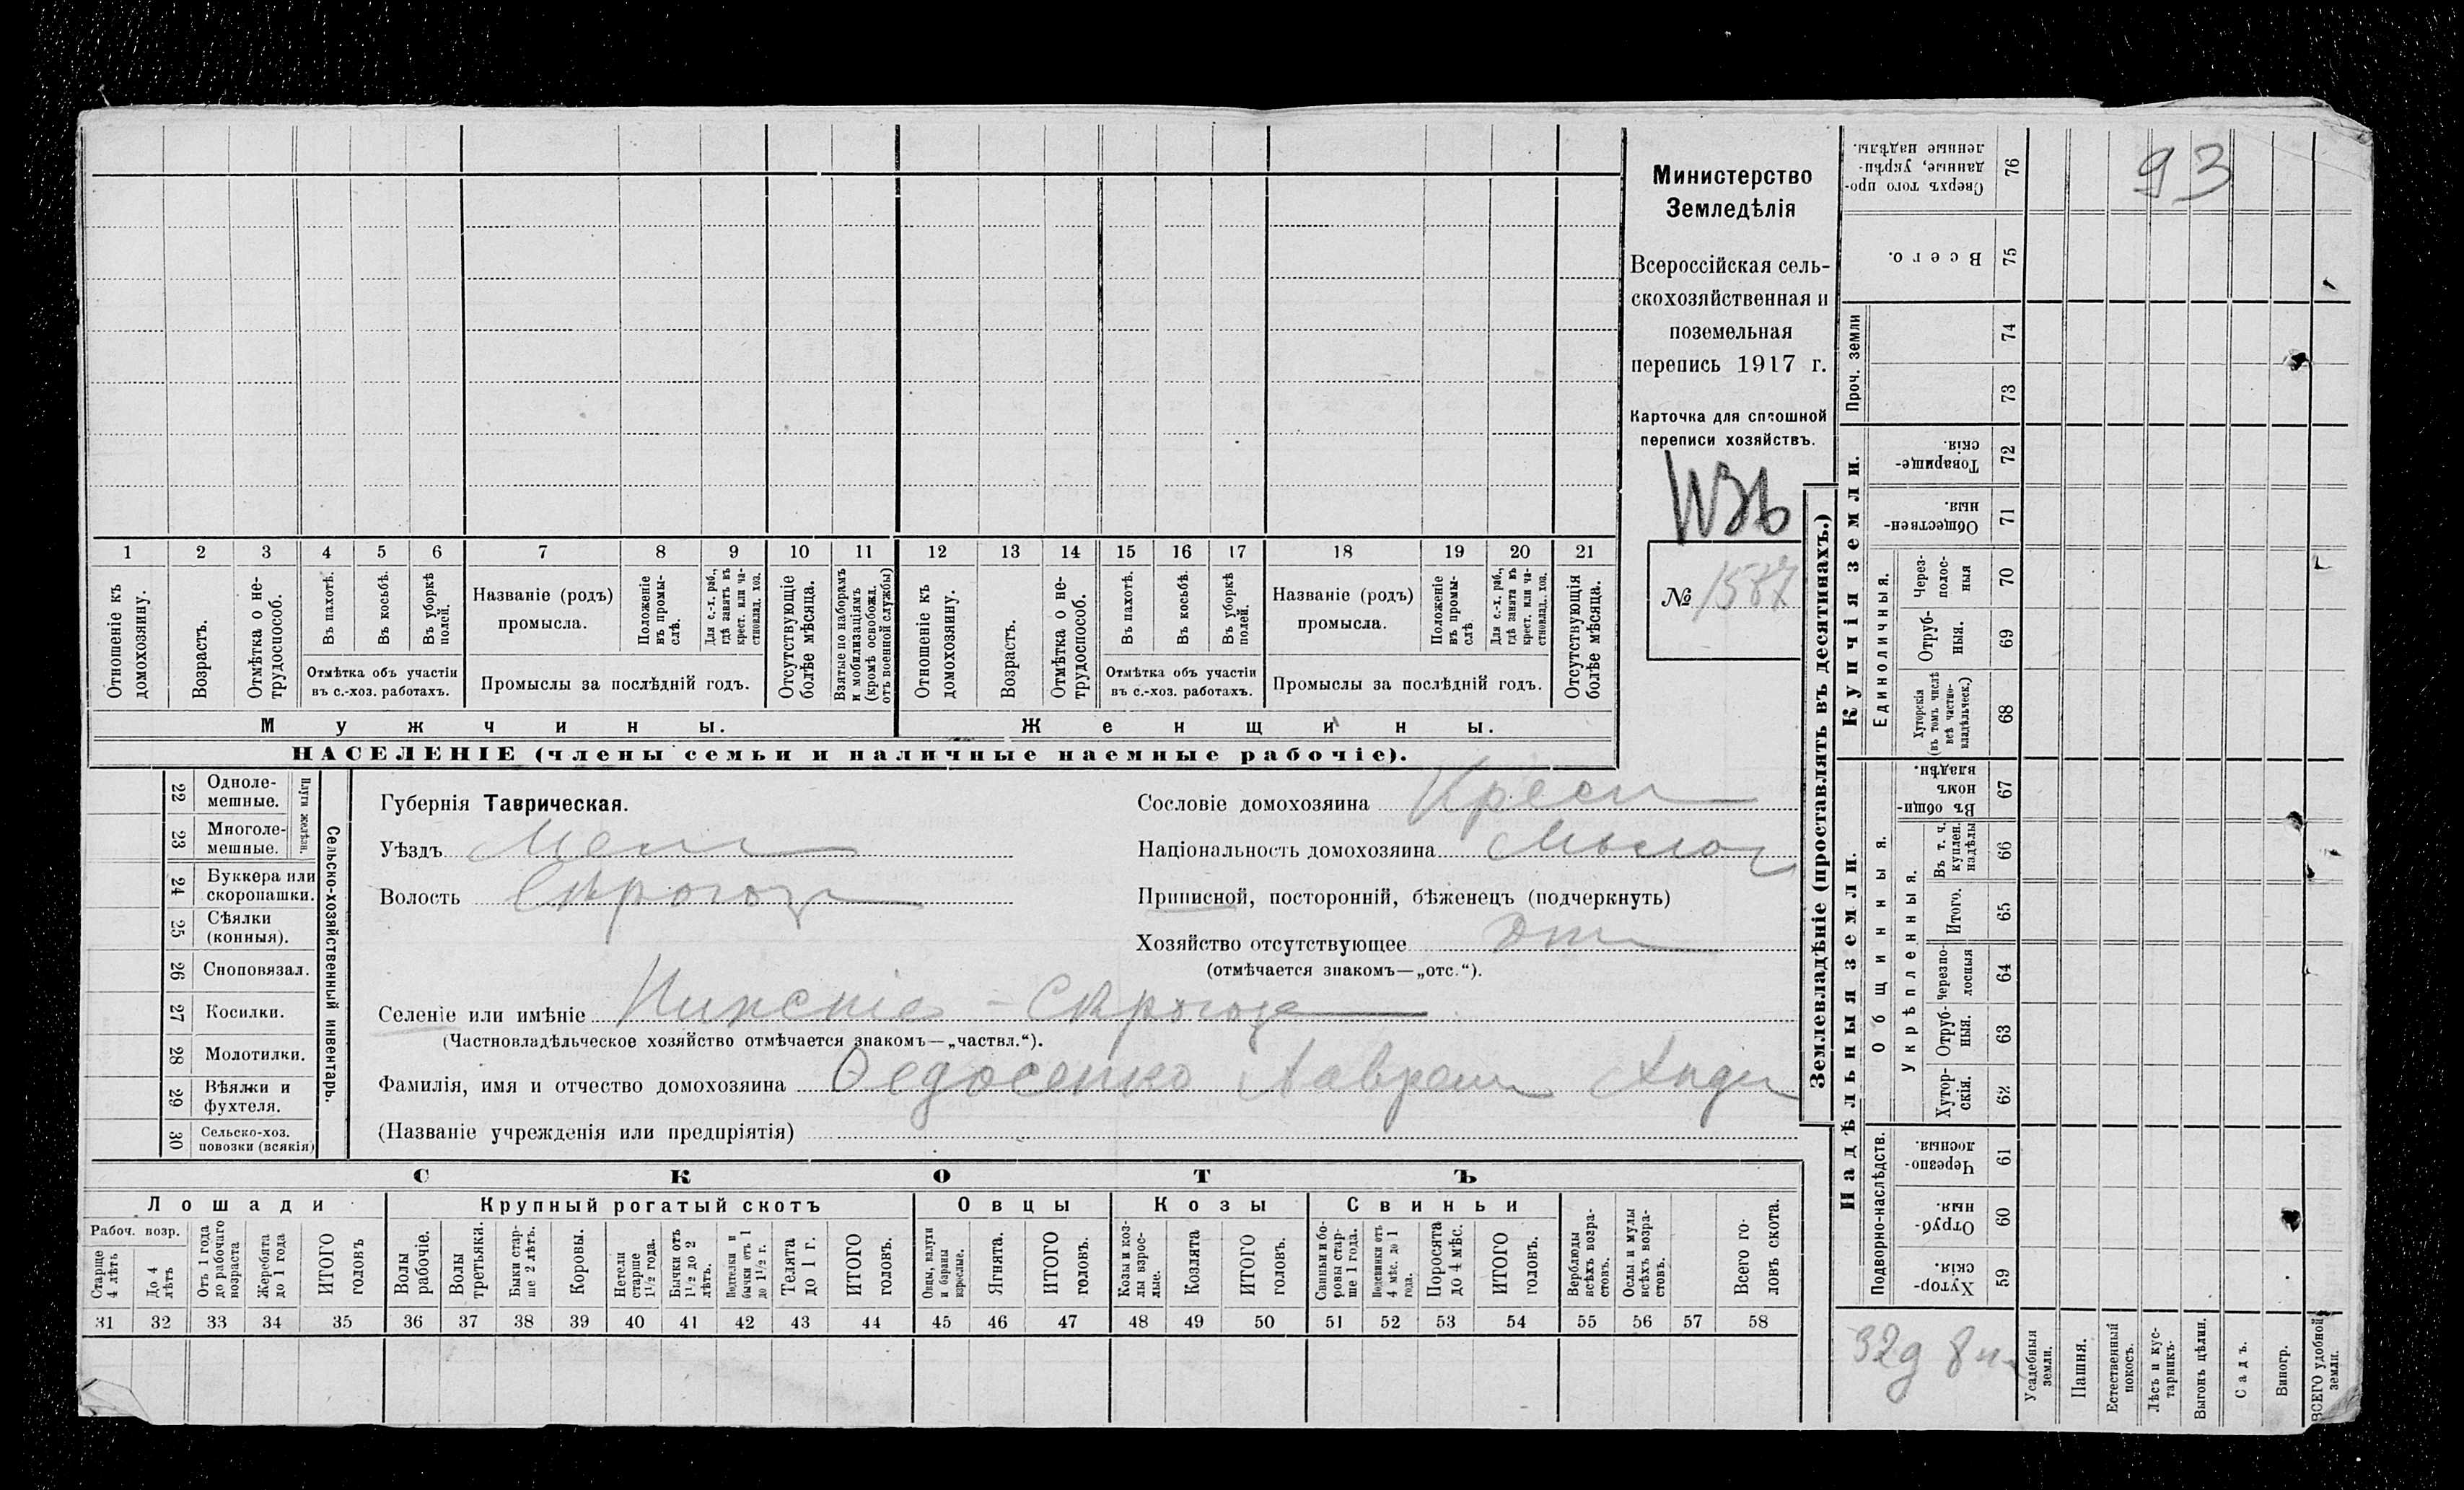 93
Министерство
Земледѣлія
Всероссійская сель-
скохозяйственная и
поземельная
перепись 1917 г.
Карточка для сплошной
переписи хозяйствъ.
№ 1587
1 2 3 4 5 6 7 8 9 10 11 12 13 14 15 16 17 18 19 20 21
Отношеніе къ домохозяину.
Возрастъ.
Отмѣтка о не-трудоспособ.
Въ пахотѣ.
Въ косьбѣ.
Въ уборкѣ полей.
Отмѣтка объ участіи
въ с.-хоз. работахъ.
Названіе (родъ)
промысла.
Положеніе въ промы-слѣ.
Для с.-х. раб., гдѣ занятъ въ крест. или ча-стновлад. хоз.
Промыслы за послѣдній годъ.
Отсутствующіе болѣе мѣсяца.
Взятые по наборамъ и мобилизаціямъ (кромѣ освобожд. отъ военной службы)
Отношеніе къ домохозяину.
Возрастъ.
Отмѣтка о не-трудоспособ.
Въ пахотѣ.
Въ косьбѣ.
Въ уборкѣ полей.
Отмѣтка объ участіи
въ с.-хоз. работахъ.
Названіе (родъ)
промысла.
Положеніе въ промы-слѣ
Для с.-х. раб., гдѣ занята въ крест. или ча-стновлад. хоз.
Промыслы за послѣдній годъ.
Отсутствующія болѣе мѣсяца.
Мужчины.
Женщины.
НАСЕЛЕНІЕ (члены семьи и наличные наемные рабочіе).
Сельско-хозяйственный инвентарь.
Плуги желѣзн.
22 Одноле-мешные.
23 Многоле-мешные.
24 Буккера или скоропашки.
25 Сѣялки (конныя).
26 Сноповязал.
27 Косилки.
28 Молотилки.
29 Вѣялки и фухтеля.
30 Сельско-хоз. повозки (всякія)
Губернія Таврическая.
Уѣздъ Мели
Волость Сѣрогоз
Сословіе домохозяина Крест
Національность домохозяина Малор
Приписной, посторонній, бѣженецъ (подчеркнуть)
Хозяйство отсутствующее Отс
(отмѣчается знакомъ—„отс.“).
Селеніе или имѣніе Нижніе-Сѣрогозы
(Частновладѣльческое хозяйство отмѣчается знакомъ—„частвл.“).
Фамилія, имя и отчество домохозяина Ѳедосенко Лаврент Андр
(Названіе учрежденія или предпріятія)
СКОТЪ
Лошади
Крупный рогатый скотъ
Овцы
Козы
Свиньи
Рабоч. возр.
Старше 4 лѣтъ
До 4 лѣтъ
Отъ 1 года до рабочаго возраста
Жеребята до 1 года
ИТОГО головъ
Волы рабочіе.
Волы третьяки.
Быки стар-ше 2 лѣтъ.
Коровы.
Нетели старше 1½ года.
Бычки отъ 1½ до 2 лѣтъ.
Подтелки и бычки отъ 1 до 1½ г.
Телята до 1 г.
ИТОГО головъ.
Овцы, валухи и бараны взрослые.
Ягнята.
ИТОГО головъ.
Козы и коз-лы взрос-лые.
Козлята
ИТОГО головъ.
Свиньи и бо-ровы стар-ше 1 года.
Подсвинки отъ 4 мѣс. до 1 года.
Поросята до 4 мѣс.
ИТОГО головъ.
Верблюды всѣхъ возра-стовъ.
Ослы и мулы всѣхъ возра-стовъ.
Всего го-ловъ скота.
31 32 33 34 35 36 37 38 39 40 41 42 43 44 45 46 47 48 49 50 51 52 53 54 55 56 57 58
Землевладѣніе (проставлять въ десятинахъ.)
Сверхъ того про-данные, укрѣп-ленные надѣлы. 76
Всего. 75
Проч. земли 74
73
Купчія земли.
Товарище-скія. 72
Обществен-ныя. 71
Единоличныя.
Через-полос-ныя 70
Отруб-ныя. 69
Хуторскія (въ томъ числѣ всѣ частно-владѣльческ.) 68
Надѣльныя земли.
Общинныя.
Въ общи-номъ владѣн. 67
Укрѣпленныя.
Въ т. ч. куплен. надѣлы 66
Итого. 65
Черезпо-лосныя 64
Отруб-ныя. 63
Хутор-скія. 62
Подворно-наслѣдств.
Черезпо-лосныя 61
Отруб-ныя. 60
Хутор-скія. 59
32д 8 н
Усадебныя земли.
Пашня.
Естественный покосъ.
Лѣсъ и кус-тарникъ.
Выгонъ цѣлин.
Садъ.
Виногр.
ВСЕГО удобной земли.